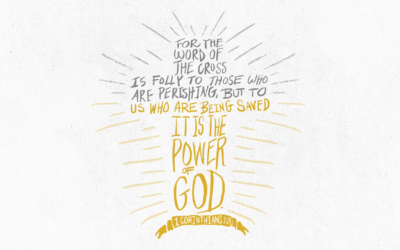 FOR THE
WORD OF
THE CROSS
IS FOLLY TO THOSE WHO
ARE PERISHING, BUT TO
US WHO ARE BEING SAVED
IT IS THE
POWER
OF
GOD.
1 CORINTHIANS